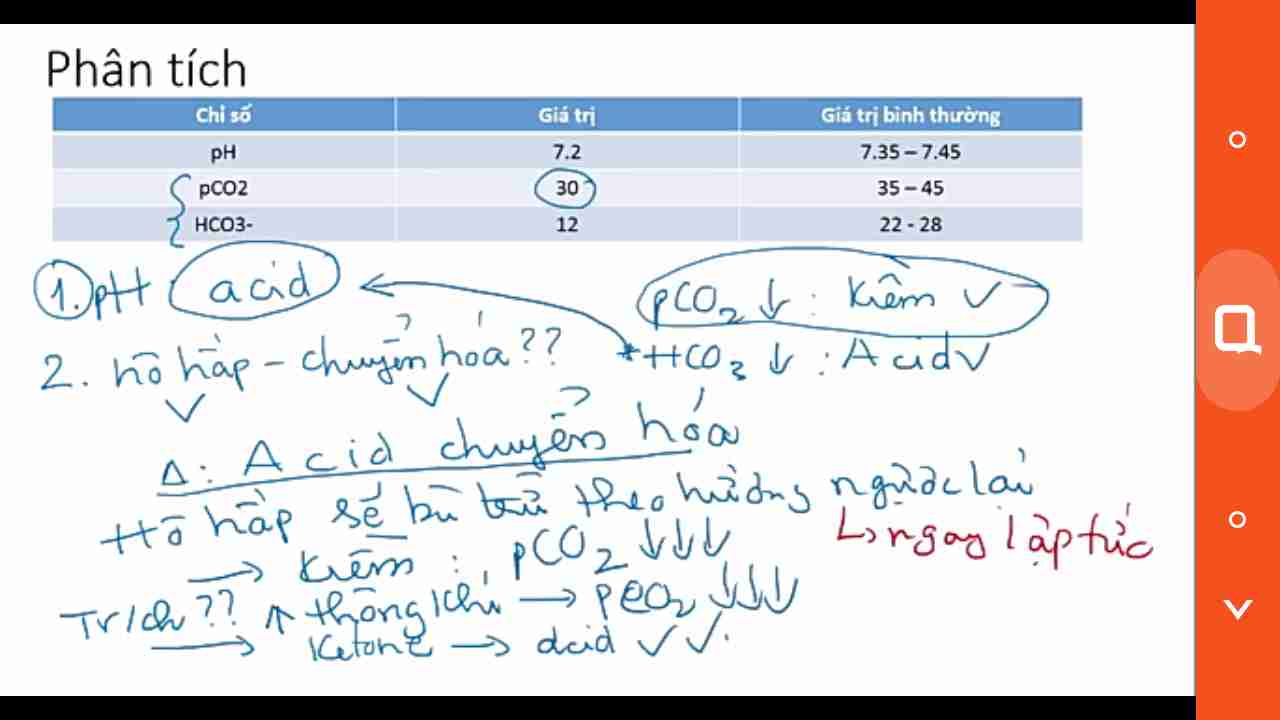 Phân tích
Chỉ số Giá trị Giá trị bình thường
pH 7.2 7.35 – 7.45
pCO2 30 35 – 45
HCO3- 12 22 - 28
1. pH acid
pCO2 ↓ : Kiềm ✓
2. hô hấp - chuyển hóa ??
* HCO3 ↓ : Acid ✓
Δ : Acid chuyển hóa
Hô hấp sẽ bù trừ theo hướng ngược lại
↳ ngay lập tức
→ Kiềm : pCO2 ↓↓↓
Tr/ch ?? ↑ thông khí → pCO2 ↓↓↓
→ Ketone → acid ✓ ✓